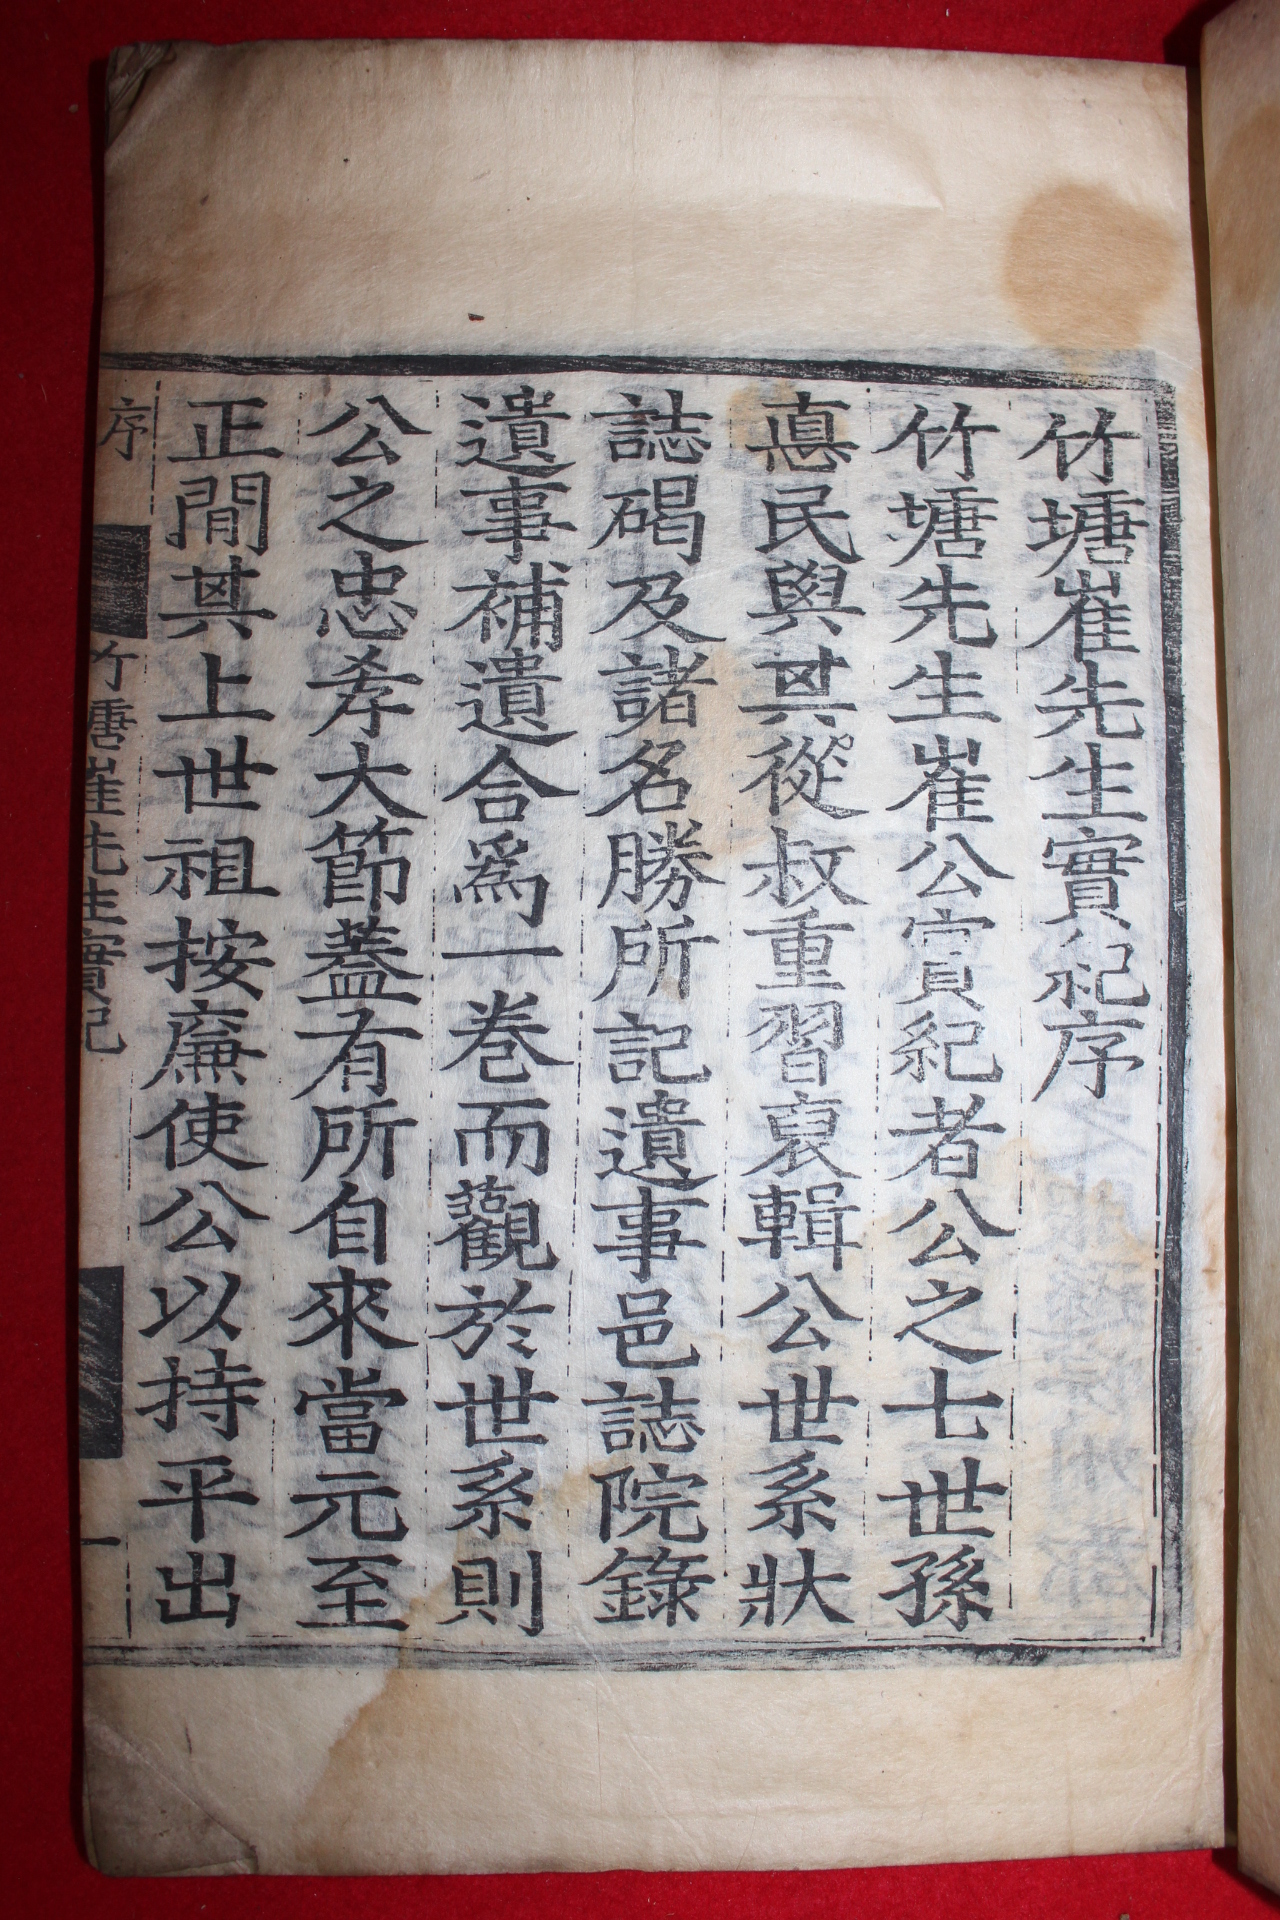 竹塘崔先生實紀序
竹塘先生崔公實紀者公之七世孫
悳民與其從叔重習裒輯公世系狀
誌碣及諸名勝所記遺事邑誌院錄
遺事補遺合爲一巻而觀於世系則
公之忠孝大節蓋有所自來當元至
正間其上世祖按廉使公以持平出
序
竹塘崔先生實紀
一